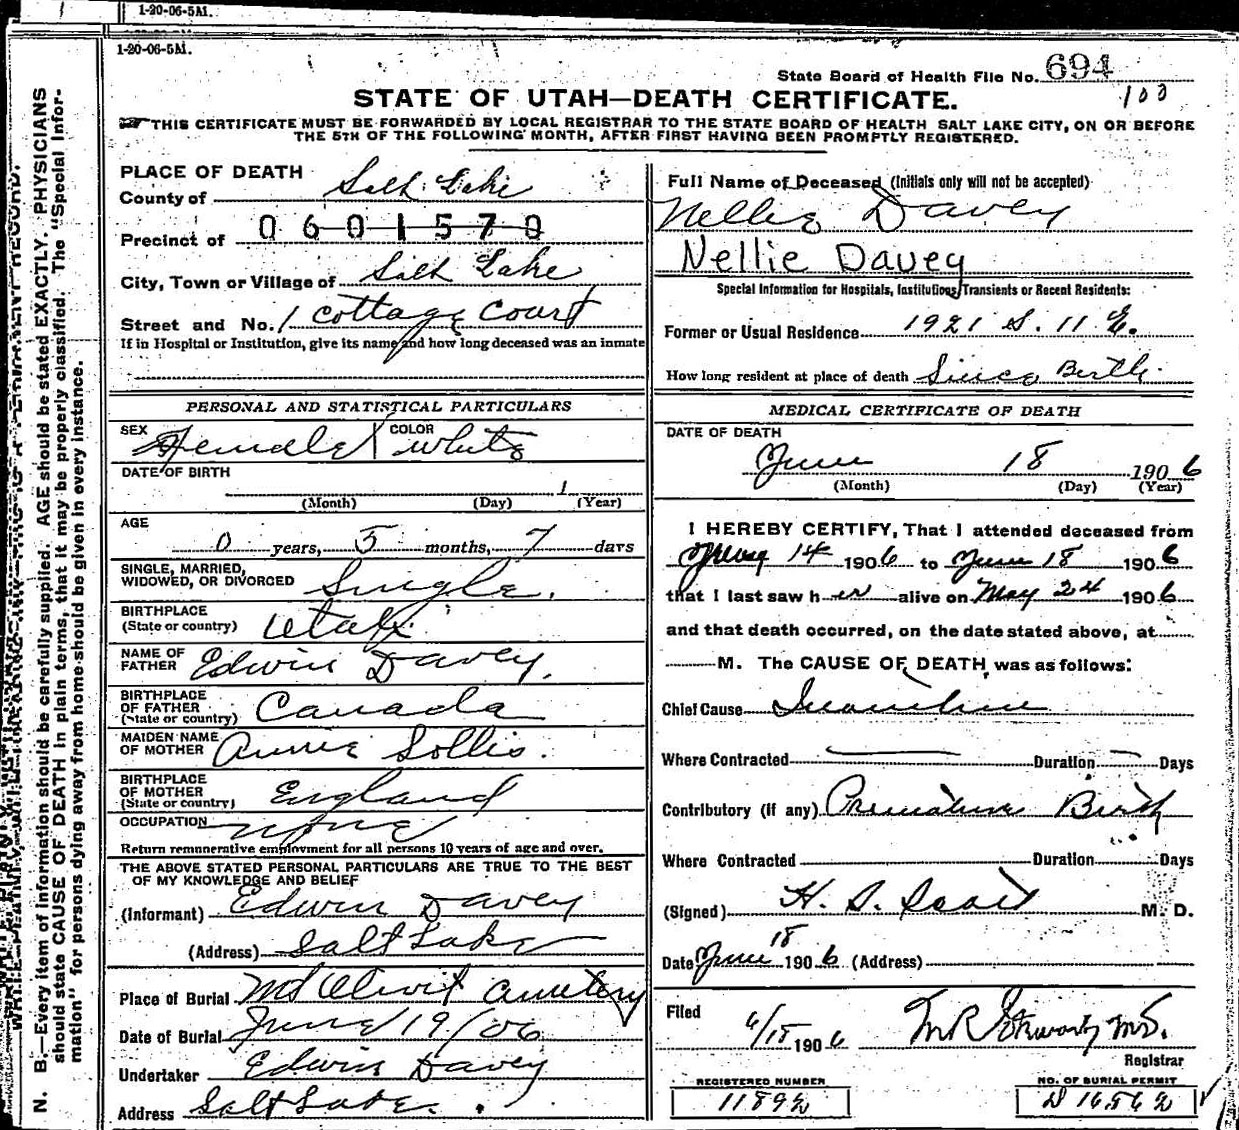 1-20-06-5M.
1-20-06-5M.
State Board of Health File No. 694
100
STATE OF UTAH—DEATH CERTIFICATE.
THIS CERTIFICATE MUST BE FORWARDED BY LOCAL REGISTRAR TO THE STATE BOARD OF HEALTH SALT LAKE CITY, ON OR BEFORE
THE 5TH OF THE FOLLOWING MONTH, AFTER FIRST HAVING BEEN PROMPTLY REGISTERED.
N. B.—Every item of information should be carefully supplied. AGE should be stated EXACTLY. PHYSICIANS
should state CAUSE OF DEATH in plain terms, that it may be properly classified. The "Special Infor-
mation" for persons dying away from home should be given in every instance.
PLACE OF DEATH
County of Salt Lake
Precinct of 0601570
City, Town or Village of Salt Lake
Street and No. 1 Cottage Court
If in Hospital or Institution, give its name and how long deceased was an inmate
PERSONAL AND STATISTICAL PARTICULARS
SEX Female COLOR White
DATE OF BIRTH
1
(Month) (Day) (Year)
AGE
0 years, 5 months, 7 days
SINGLE, MARRIED,
WIDOWED, OR DIVORCED Single.
BIRTHPLACE
(State or country) Utah
NAME OF
FATHER Edwin Davey.
BIRTHPLACE
OF FATHER
(State or country) Canada
MAIDEN NAME
OF MOTHER Annie Sollis.
BIRTHPLACE
OF MOTHER
(State or country) England
OCCUPATION None
Return remunerative employment for all persons 10 years of age and over.
THE ABOVE STATED PERSONAL PARTICULARS ARE TRUE TO THE BEST
OF MY KNOWLEDGE AND BELIEF
(Informant) Edwin Davey
(Address) Salt Lake
Place of Burial Mt Olivit Cemetery
Date of Burial June 19/06
Undertaker Edwin Davey
Address Salt Lake.
Full Name of Deceased (Initials only will not be accepted)
Nellie Davey
Nellie Davey
Special Information for Hospitals, Institutions, Transients or Recent Residents:
Former or Usual Residence 1921 S. 11 E.
How long resident at place of death Since Birth.
MEDICAL CERTIFICATE OF DEATH
DATE OF DEATH
June 18 1906
(Month) (Day) (Year)
I HEREBY CERTIFY, That I attended deceased from
14 1906 to June 18 1906
that I last saw her alive on May 24 1906
and that death occurred, on the date stated above, at
M. The CAUSE OF DEATH was as follows:
Chief Cause Inanition
Where Contracted — Duration — Days
Contributory (if any) Premature Birth
Where Contracted Duration Days
(Signed) H. S. Scott M. D.
Date June 18 1906 (Address)
Filed
6/18 1906 M.D.
Registrar
REGISTERED NUMBER
11892
NO. OF BURIAL PERMIT